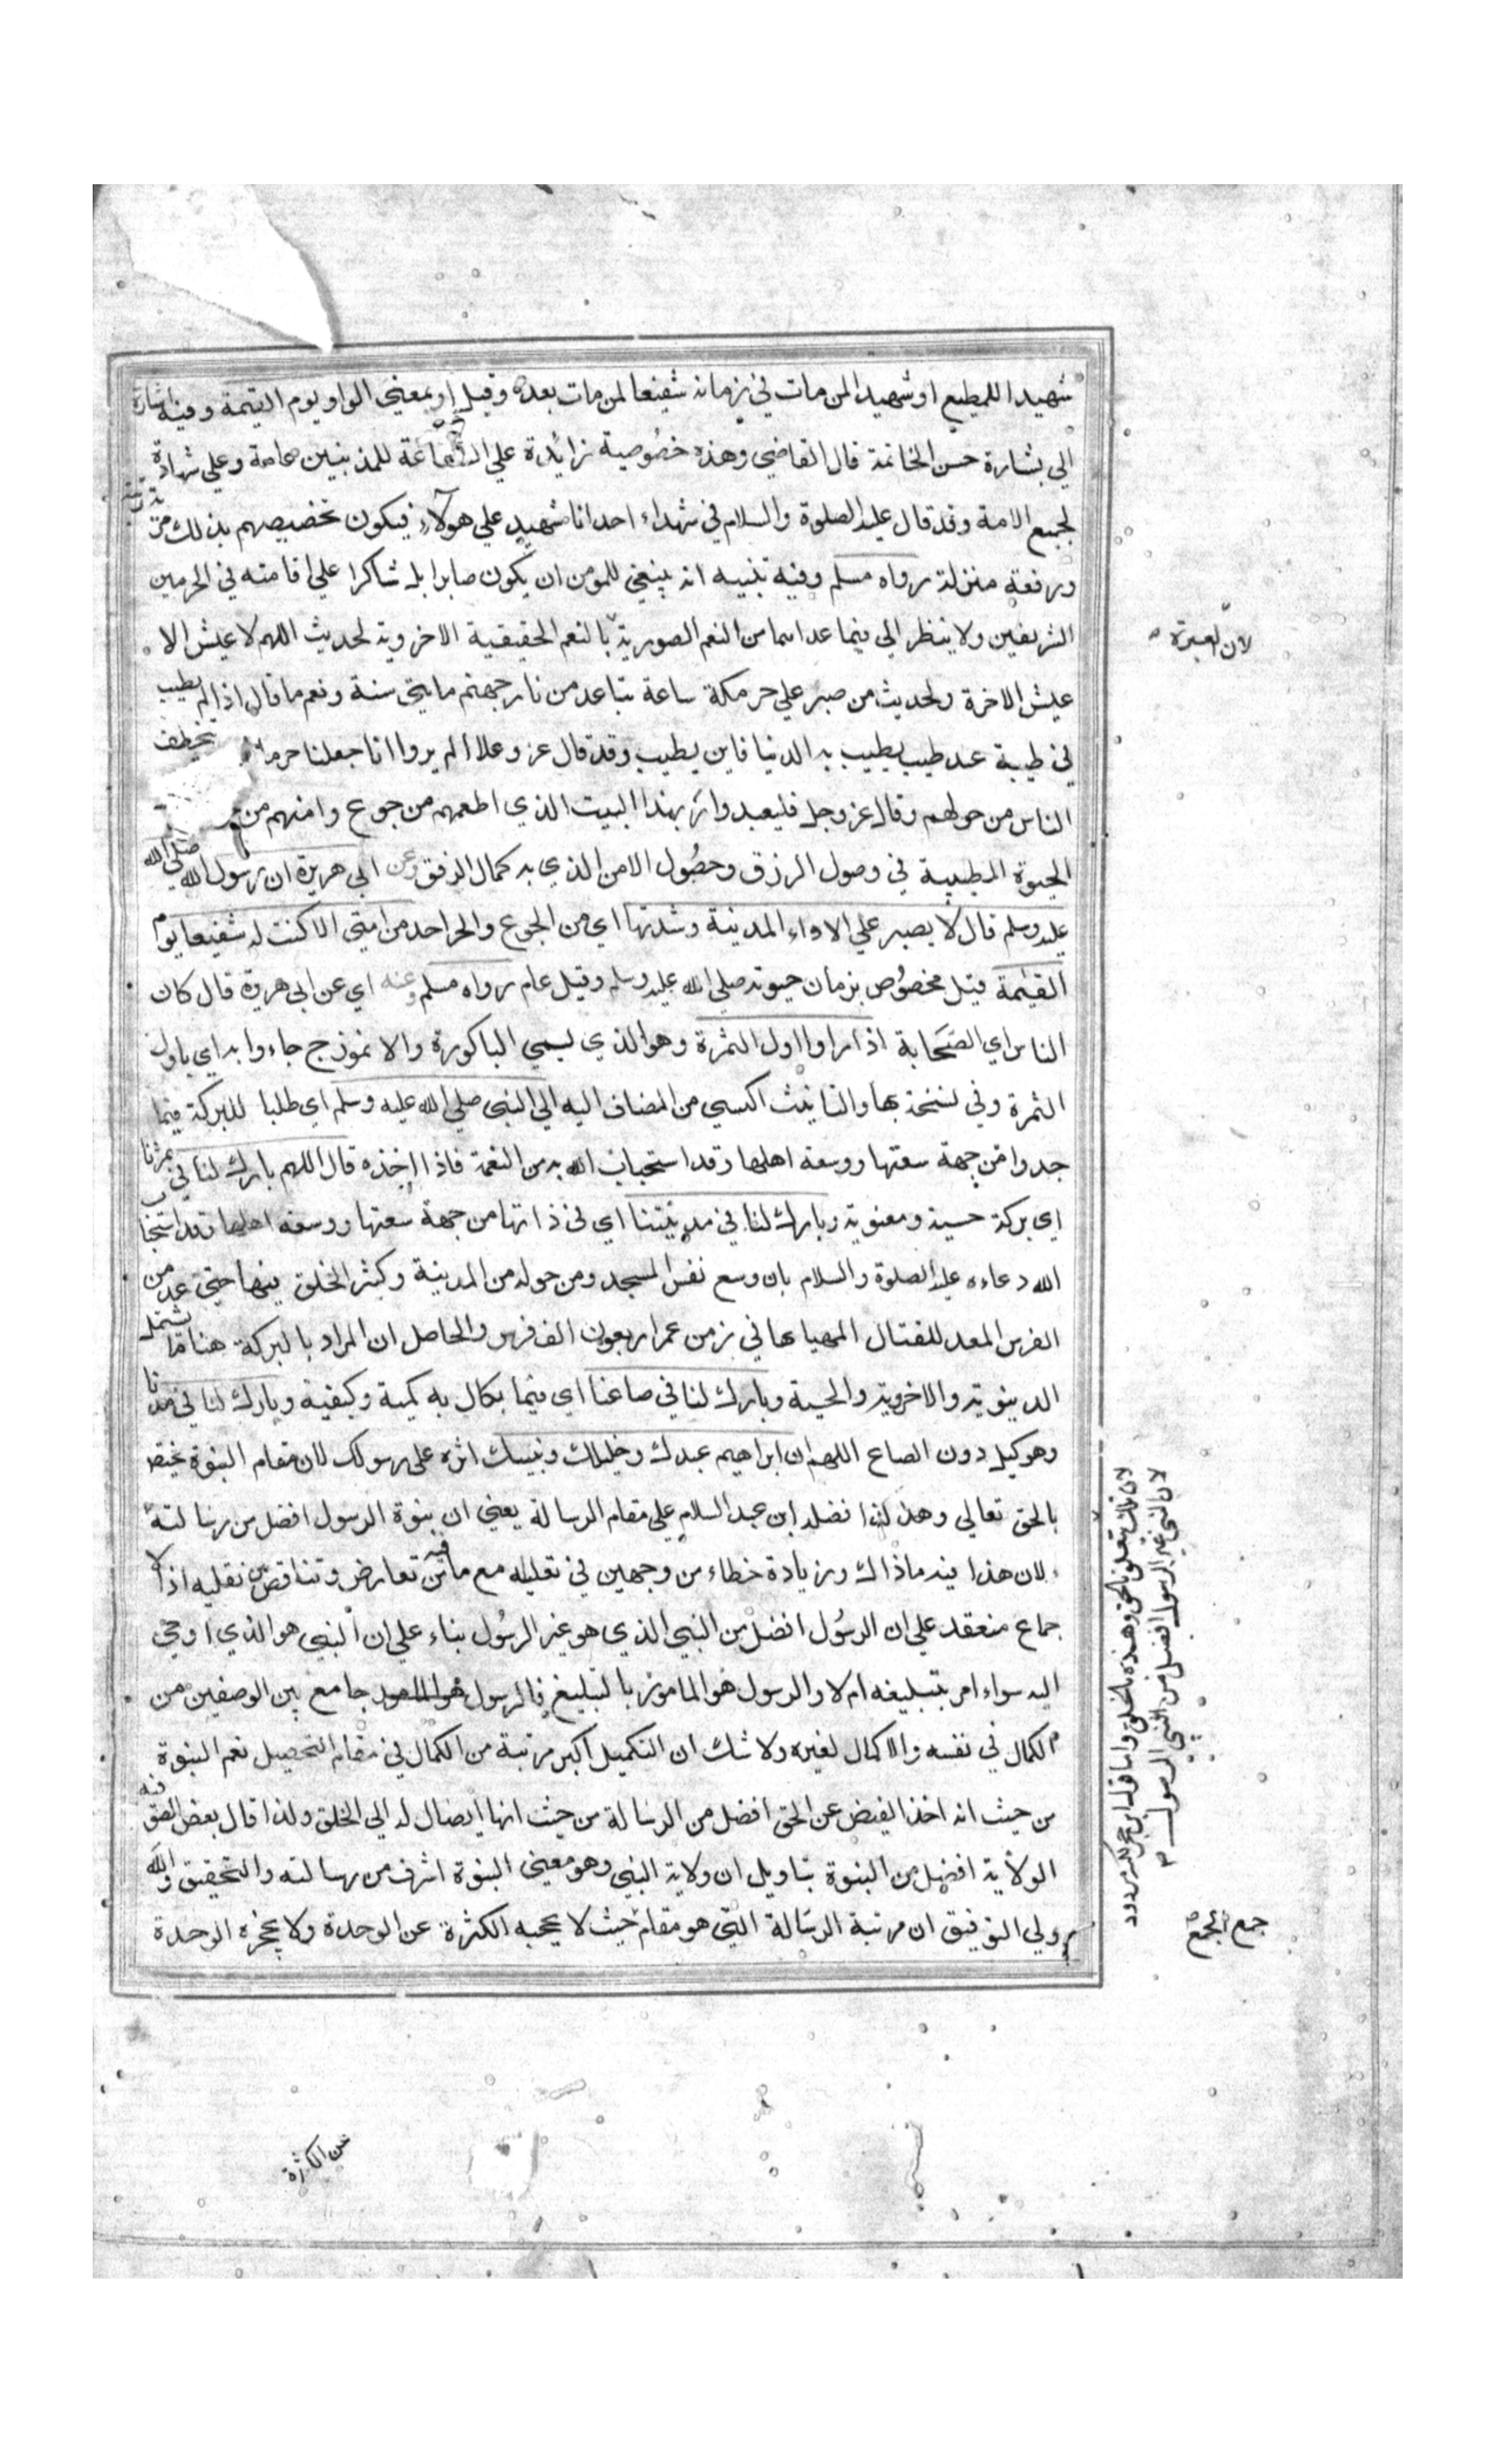 شهيدا للمطيع او شهيدا لمن مات في زمانه شفيعا لمن مات بعده وقيل او بمعني الواو يوم القيمة وفيه اشارة
الي بشارة حسن الخاتمة قال القاضي وهذه خصوصية زائدة علي الشفاعة للمذنبين عامة وعلي شهادة
لجميع الامة وقد قال عليه الصلوة والسلام في شهداء احد انا شهيد علي هولاء فيكون تخصيصهم بذلك
ورفعة منزلة رواه مسلم وفيه تنبيه انه ينبغي للمومن ان يكون صابرا بل شاكرا علي اقامته في الحرمين
الشريفين ولا ينظر الي فيما عداهما من النعم الصورية بالنعم الحقيقية الاخروية لحديث اللهم لا عيش الا
عيش الاخرة ولحديث من صبر علي حر مكة ساعة تباعد من نار جهنم مايتي سنة ونعم ما قال اذا لم يطيب
في طيبة عند طيب يطيب به الدنيا فاين يطيب وقد قال عز وعلا الم يروا انا جعلنا حرما يتخطف
الناس من حولهم وقال عز وجل فليعبدوا رب هذا البيت الذي اطعمهم من جوع وامنهم من
الحيوة الطيبة في وصول الرزق وحصول الامن الذي به كمال الرفق وعن ابي هريرة ان رسول الله صلي الله
عليه وسلم قال لا يصبر علي الاواء المدينة وشدتها اي من الجوع والحر احد من امتي الا كنت له شفيعا يوم
القيمة قيل مخصوص بزمان حيوته صلي الله عليه وسلم وقيل عام رواه مسلم وعنه اي عن ابي هريرة قال كان
الناس اي الصحابة اذا راوا اول الثمرة وهو الذي يسمي الباكورة والانموذج جاءوا به اي باول
الثمرة وفي نسخة بها والتانيث اكسي من المضاف اليه الي النبي صلي الله عليه وسلم اي طلبا للبركة فيما
جدوا من جهة سعتها ووسعة اهلها وقد استجاب الله به من النعمة فاذا اخذه قال اللهم بارك لنا في ثمرنا
اي بركة حسية ومعنوية وبارك لنا في مدينتنا اي في ذاتها من جهة سعتها ووسعة اهلها وقد استجاب
الله دعاءه عليه الصلوة والسلام بان وسع نفس المسجد ومن حوله من المدينة وكثر الخلق فيها حتي عد من
الفرس المعد للقتال المهيا بها في زمن عمر اربعون الف فرس والحاصل ان المراد بالبركة هنا ما يشتمل
الدينوية والاخروية والحسية وبارك لنا في صاعنا اي فيما يكال به كمية وكيفية وبارك لنا في مدنا
وهو كيل دون الصاع اللهم ان ابراهيم عبدك وخليلك ونبيك اثره علي رسولك لان مقام النبوة يختص
بالحق تعالي وهذا لذا فضله ابن عبد السلام علي مقام الرسالة يعني ان نبوة الرسول افضل من رسالته
لان هذا فيه ماذاك وزيادة خطاء من وجهين في تعليله مع ما فيه من تعارض وتناقض بين نقليه اذ الا
جماع منعقد علي ان الرسول افضل من النبي الذي هو غير الرسول بناء علي ان النبي هو الذي اوحي
اليه سواء امر بتبليغه ام لا والرسول هو المامور بالتبليغ فالرسول جامع بين الوصفين من
الكمال في نفسه والاكمال لغيره ولا شك ان التكميل اكبر مرتبة من الكمال في مقام التحصيل نعم النبوة
من حيث انه اخذ الفيض عن الحق افضل من الرسالة من حيث انها ايصال له الي الخلق ولذا قال بعض الصوفية
الولاية افضل من النبوة بتاويل ان ولاية النبي وهو معني النبوة اشرف من رسالته والتحقيق والله
ولي التوفيق ان مرتبة الرسالة التي هو مقام حيث لا يحجبه الكثرة عن الوحدة ولا يحجزه الوحدة
لان العبرة
لان تلك تتعلق بالحق وهذه بالخلق واما قول ابن حجر مردود
لان النبي غير الرسول افضل من النبي الرسول
جمع الجمع
عن الكثرة